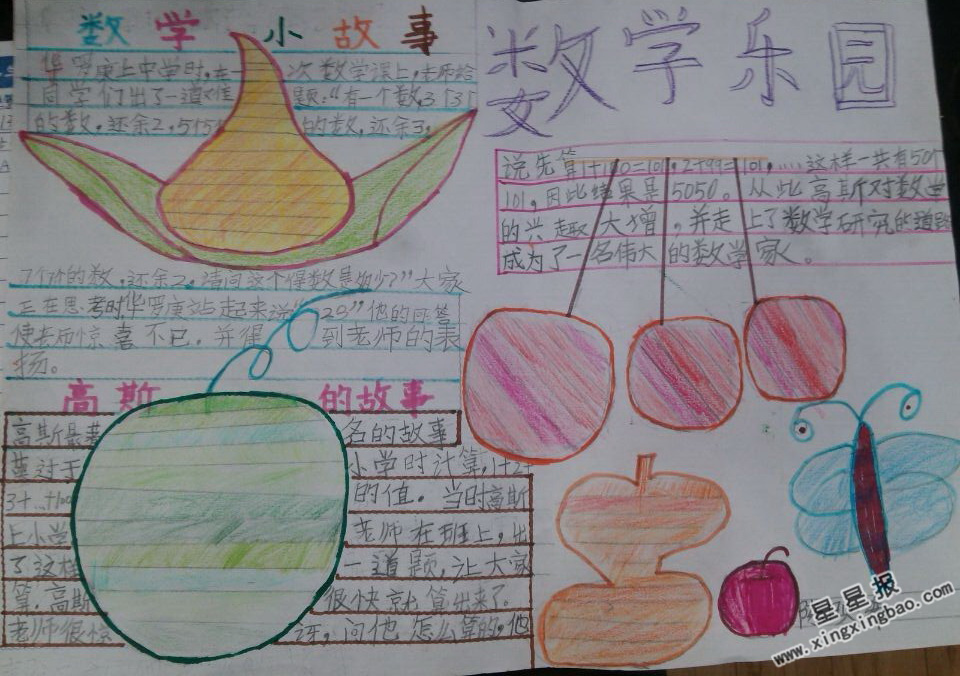 数学小故事
华罗庚上中学时,在一次数学课上,老师给
同学们出了一道 题:"有一个数,3个3个
的数,还余2,5个5个的数,还余3,
7个7个的数,还余2,请问这个得数是如少?"大家
正在思考时,华罗庚站起来说"23"他的回答
使老师惊喜不已,并得到老师的表
扬。
高斯的故事
高斯最著名的故事
莫过于小学时计算,1+2+
3+…+100的值。当时高斯
上小学 老师在班上,出
了这样一道题,让大家
算,高斯很快就算出来了
老师很惊讶,问他怎么算的,他
数学乐园
说先算1+100=101,2+99=101,……这样一共有50个
101,因此结果是5050。从此高斯对数学
的兴趣大增,并走上了数学研究的道路
成为了一名伟大的数学家。
星星报
www.xingxingbao.com